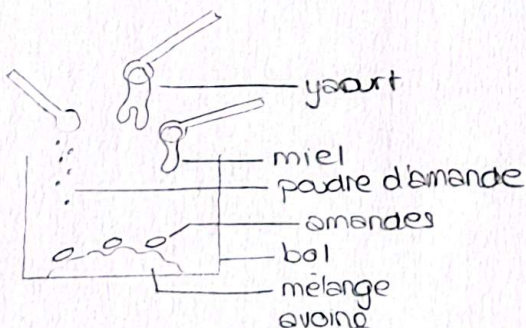 yaourt
miel
poudre d'amande
amandes
bol
mélange
avoine